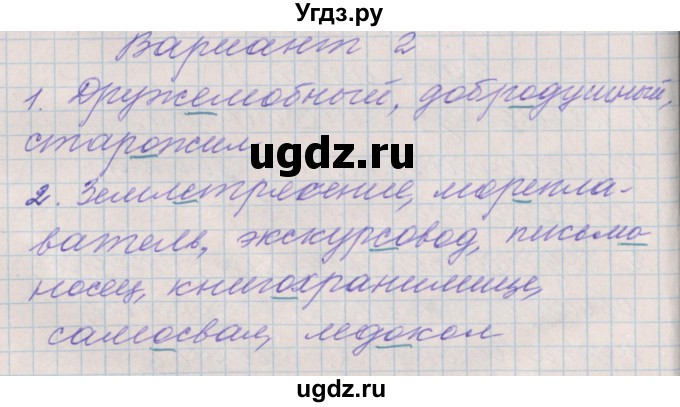 Угдз.ру
Вариант 2
1. Дружелюбный, добродушный,
старожил
ugdz.ru
2. Землетрясение, морепла-
ватель, экскурсовод, письмо
носец, книгохранилище,
самосвал, ледокол
ugdz.ru